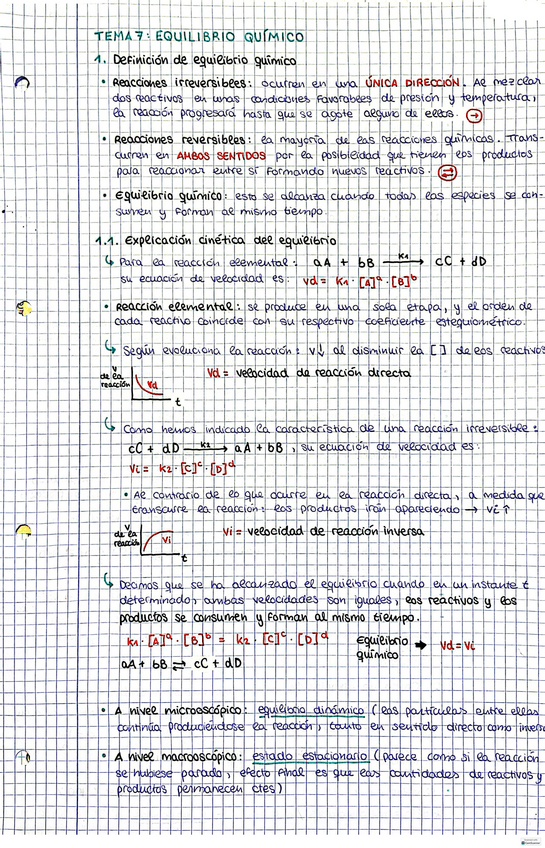 TEMA 7: EQUILIBRIO QUÍMICO
1. Definición de equilibrio químico
• Reacciones irreversibles: ocurren en una ÚNICA DIRECCIÓN. Al mezclar
dos reactivos en unas condiciones favorables de presión y temperatura,
la reacción progresará hasta que se agote alguno de ellos. →
• Reacciones reversibles: la mayoría de las reacciones químicas. Trans-
curren en AMBOS SENTIDOS por la posibilidad que tienen los productos
para reaccionar entre sí formando nuevos reactivos. ⇄
• Equilibrio químico: esto se alcanza cuando todas las especies se con-
sumen y forman al mismo tiempo.
1.1. Explicación cinética del equilibrio
↳ Para la reacción elemental: aA + bB —K1→ cC + dD
su ecuación de velocidad es: vd = K1 · [A]ᵃ · [B]ᵇ
• Reacción elemental: se produce en una sola etapa, y el orden de
cada reactivo coincide con su respectivo coeficiente estequiométrico.
↳ Según evoluciona la reacción: v↓ al disminuir la [ ] de los reactivos
v de la reacción Vd t
Vd = velocidad de reacción directa
↳ Como hemos indicado la característica de una reacción irreversible:
cC + dD —K2→ aA + bB, su ecuación de velocidad es:
Vi = K2 · [C]ᶜ · [D]ᵈ
• Al contrario de lo que ocurre en la reacción directa, a medida que
transcurre la reacción: los productos irán apareciendo → vi↑
v de la reacción Vi t
Vi = velocidad de reacción inversa
↳ Decimos que se ha alcanzado el equilibrio cuando en un instante t
determinado, ambas velocidades son iguales, los reactivos y los
productos se consumen y forman al mismo tiempo.
K1 · [A]ᵃ · [B]ᵇ = K2 · [C]ᶜ · [D]ᵈ Equilibrio químico → Vd = Vi
aA + bB ⇄ cC + dD
• A nivel microoscópico: equilibrio dinámico (las partículas entre ellas
continúa produciéndose la reacción, tanto en sentido directo como inverso
• A nivel macroscópico: estado estacionario (parece como si la reacción
se hubiese parado, efecto final es que las cantidades de reactivos y
productos permanecen ctes)